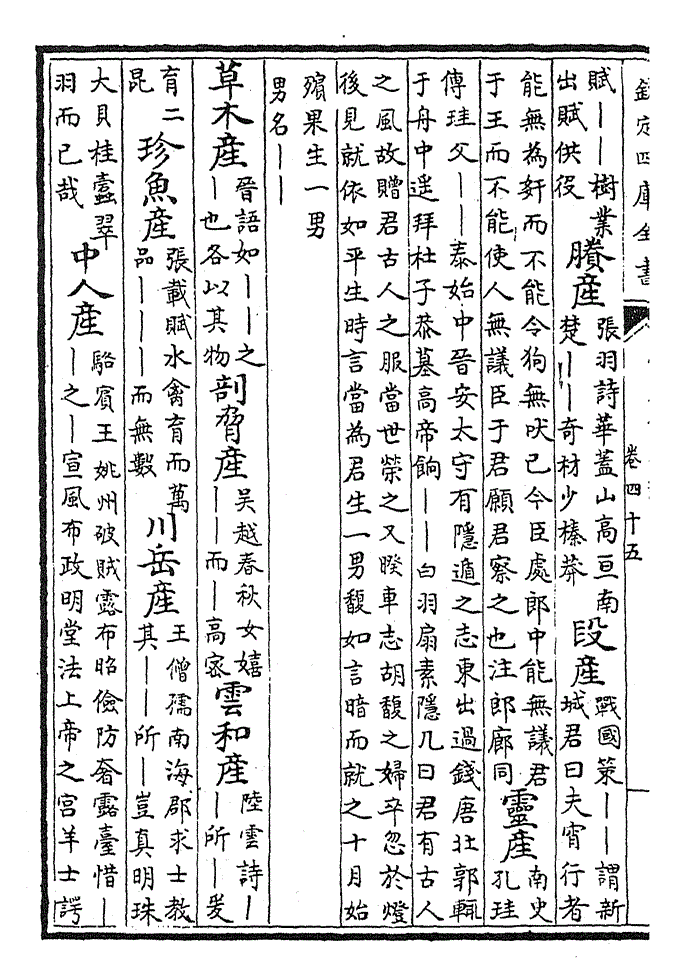 欽定四庫全書
卷四十五
賦丨丨樹業
出賦供役
賸産
張羽詩華蓋山高亘南
楚丨丨奇材少榛莽
段産
戰國策丨丨謂新
城君曰夫宵行者
能無為奸而不能令狗無吠己今臣處郎中能無議君
于王而不能使人無議臣于君願君察之也注郎廊同
靈産
南史
孔珪
傳珪父丨丨泰始中晉安太守有隱遁之志東出過錢唐北郭輒
于舟中遥拜杜子恭墓高帝餉丨丨白羽扇素隱几曰君有古人
之風故贈君古人之服當世榮之又暌車志胡馥之婦卒忽於燈
後見就依如平生時言當為君生一男馥如言暗而就之十月始
殯果生一男
男名丨丨
草木産
晉語如丨丨之
丨也各以其物
剖脅産
吴越春秋女嬉
丨丨而丨高宻
雲和産
陸雲詩丨
丨所丨爰
育二
昆
珍魚産
張載賦水禽育而萬
品丨丨丨而無數
川岳産
王僧孺南海郡求士教
其丨丨所丨豈真明珠
大貝桂蠹翠
羽而已哉
中人産
駱賓王姚州破賊露布昭儉防奢露臺惜丨
丨之丨宣風布政明堂法上帝之宫羊士諤